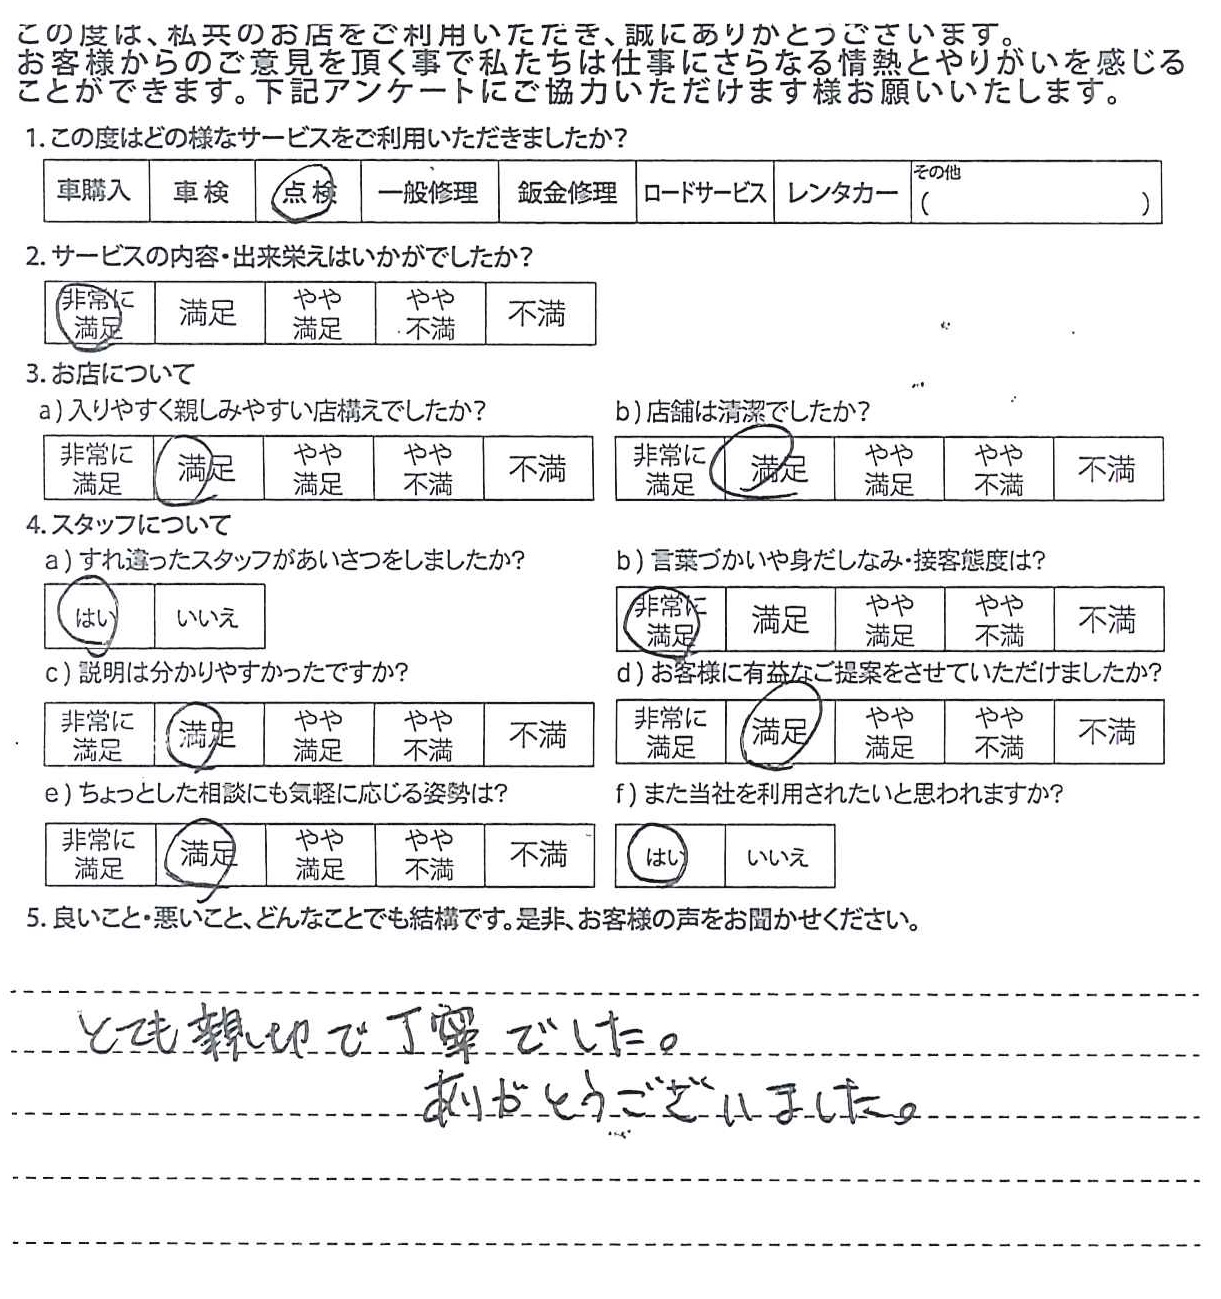 この度は、私共のお店をご利用いただき、誠にありがとうございます。
お客様からのご意見を頂く事で私たちは仕事にさらなる情熱とやりがいを感じる
ことができます。下記アンケートにご協力いただけます様お願いいたします。
1. この度はどの様なサービスをご利用いただきましたか?
車購入 車検 点検 一般修理 鈑金修理 ロードサービス レンタカー その他 ( )
2. サービスの内容・出来栄えはいかがでしたか?
非常に満足 満足 やや満足 やや不満 不満
3. お店について
a) 入りやすく親しみやすい店構えでしたか?
非常に満足 満足 やや満足 やや不満 不満
b) 店舗は清潔でしたか?
非常に満足 満足 やや満足 やや不満 不満
4. スタッフについて
a) すれ違ったスタッフがあいさつをしましたか?
はい いいえ
b) 言葉づかいや身だしなみ・接客態度は?
非常に満足 満足 やや満足 やや不満 不満
c) 説明は分かりやすかったですか?
非常に満足 満足 やや満足 やや不満 不満
d) お客様に有益なご提案をさせていただけましたか?
非常に満足 満足 やや満足 やや不満 不満
e) ちょっとした相談にも気軽に応じる姿勢は?
非常に満足 満足 やや満足 やや不満 不満
f) また当社を利用されたいと思われますか?
はい いいえ
5. 良いこと・悪いこと、どんなことでも結構です。是非、お客様の声をお聞かせください。
とても親切で丁寧でした。
ありがとうございました。